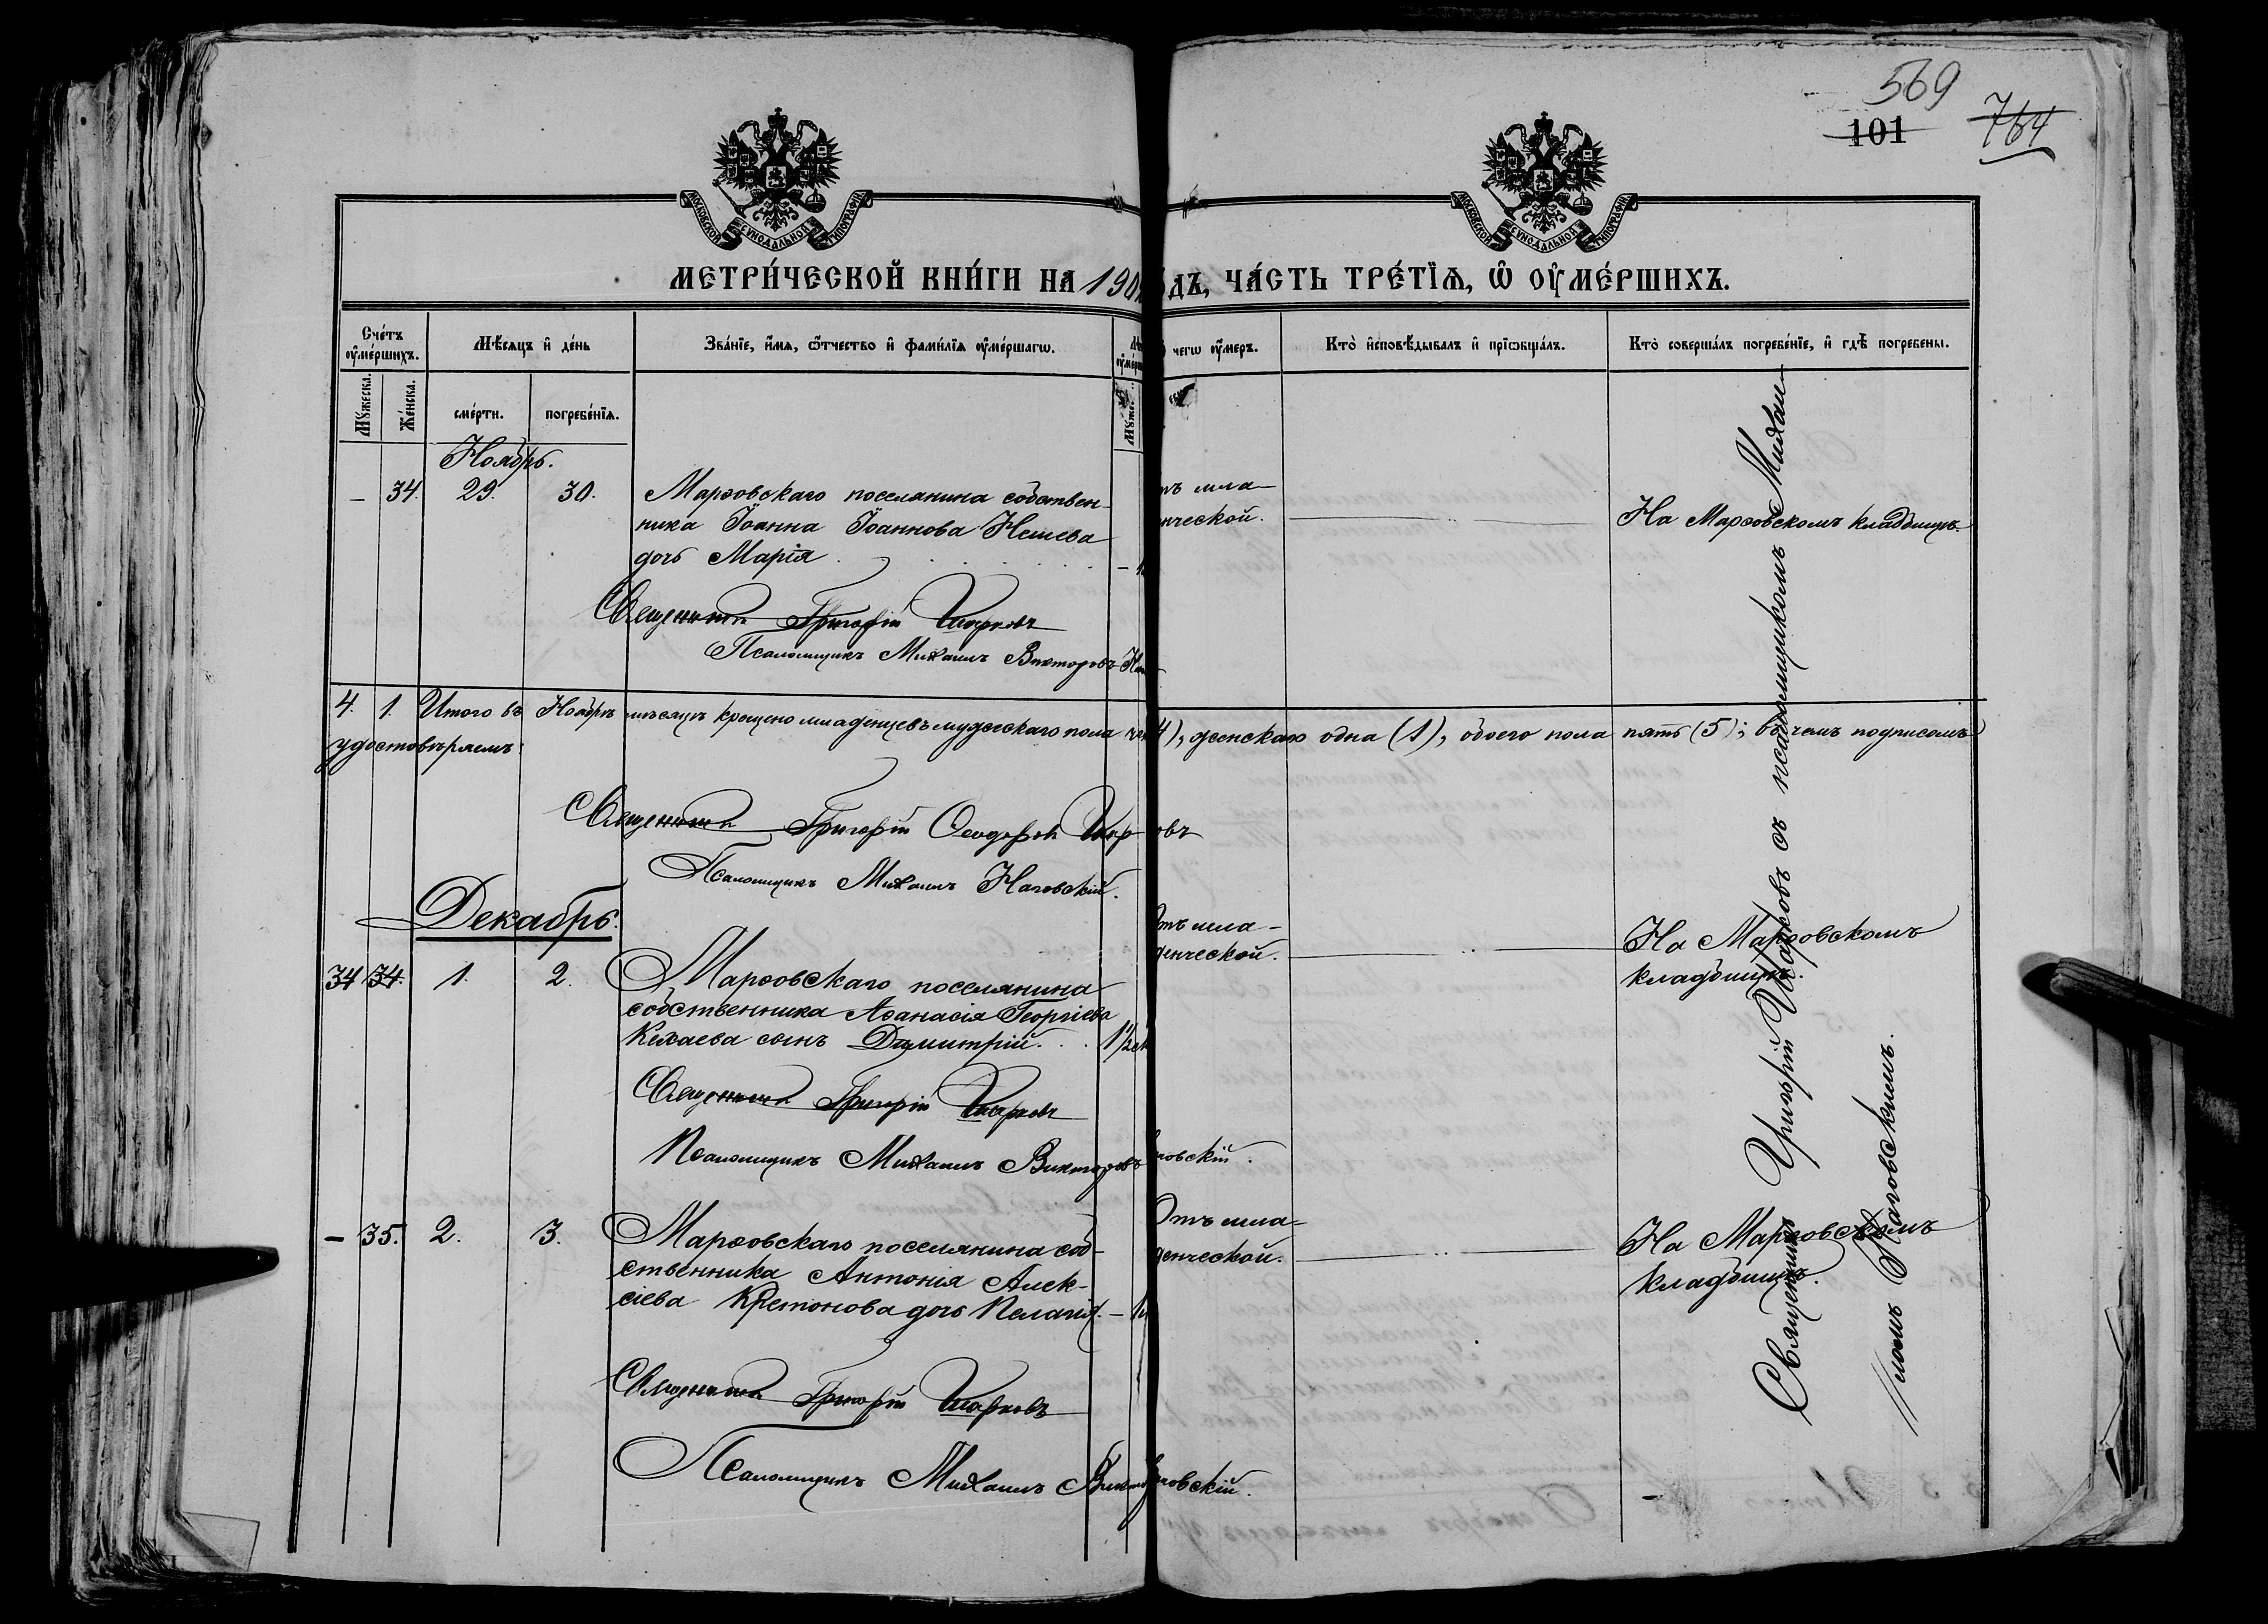 569
101
764
МОСКОВСКОЙ СУНОДАЛЬНОЙ ТИПОГРАФІИ
МОСКОВСКОЙ СУНОДАЛЬНОЙ ТИПОГРАФІИ
МЕТРИ́ЧЕСКОЙ КНИ́ГИ НА 190
дъ, ЧА́СТЬ ТРЕ́ТЇѦ, Ѡ ОУМЕ́РШИХЪ.
Счетъ оумершихъ.
Мѣсяцъ и день
Званїе, имя, отчество и фамилїя оумершагѡ.
чегѡ оумеръ.
Кто исповѣдывалъ и прїобщалъ.
Кто совершалъ погребенїе, и гдѣ погребены.
Мужеска.
Женска.
смерти.
погребенїя.
Муже
Ноябрь.
– 34. 29. 30. Марѳовскаго поселянина собствен-
ника Іоанна Іоаннова Нешева
дочь Марія
тъ мла-
нческой.
На Марѳовскомъ кладбищѣ.
Священникъ Григорій Шарковъ
Псаломщикъ Михаилъ Викторовъ
4. 1. Итого въ Ноябрѣ мѣсяцѣ крещено младенцевъ мужескаго пола 4), женскаго одна (1), обоего пола пять (5); въ чемъ подписомъ
удостовѣряемъ:
Священникъ Григорій Ѳеодоровъ Шарковъ
Псаломщикъ Михаилъ Наговскій.
Декабрь.
34 34. 1. 2. Марѳовскаго поселянина
собственника Аѳанасія Георгіева
Кехаева сынъ Димитрій. 1 1/2
Отъ мла-
денческой.
На Марѳовскомъ
кладбищѣ.
Священникъ Григорій Шарковъ
Псаломщикъ Михаилъ Викторовъ говскій.
– 35. 2. 3. Марѳовскаго поселянина соб-
ственника Антонія Алек-
сіева Кретонова дочь Пелагія. –
Отъ мла-
денческой.
На Марѳовскомъ
кладбищѣ.
Священникъ Григорій Шарковъ
Псаломщикъ Михаилъ говскій.
Священникъ Григорій Шарковъ съ псаломщикомъ Михаи-
ломъ Наговскимъ.